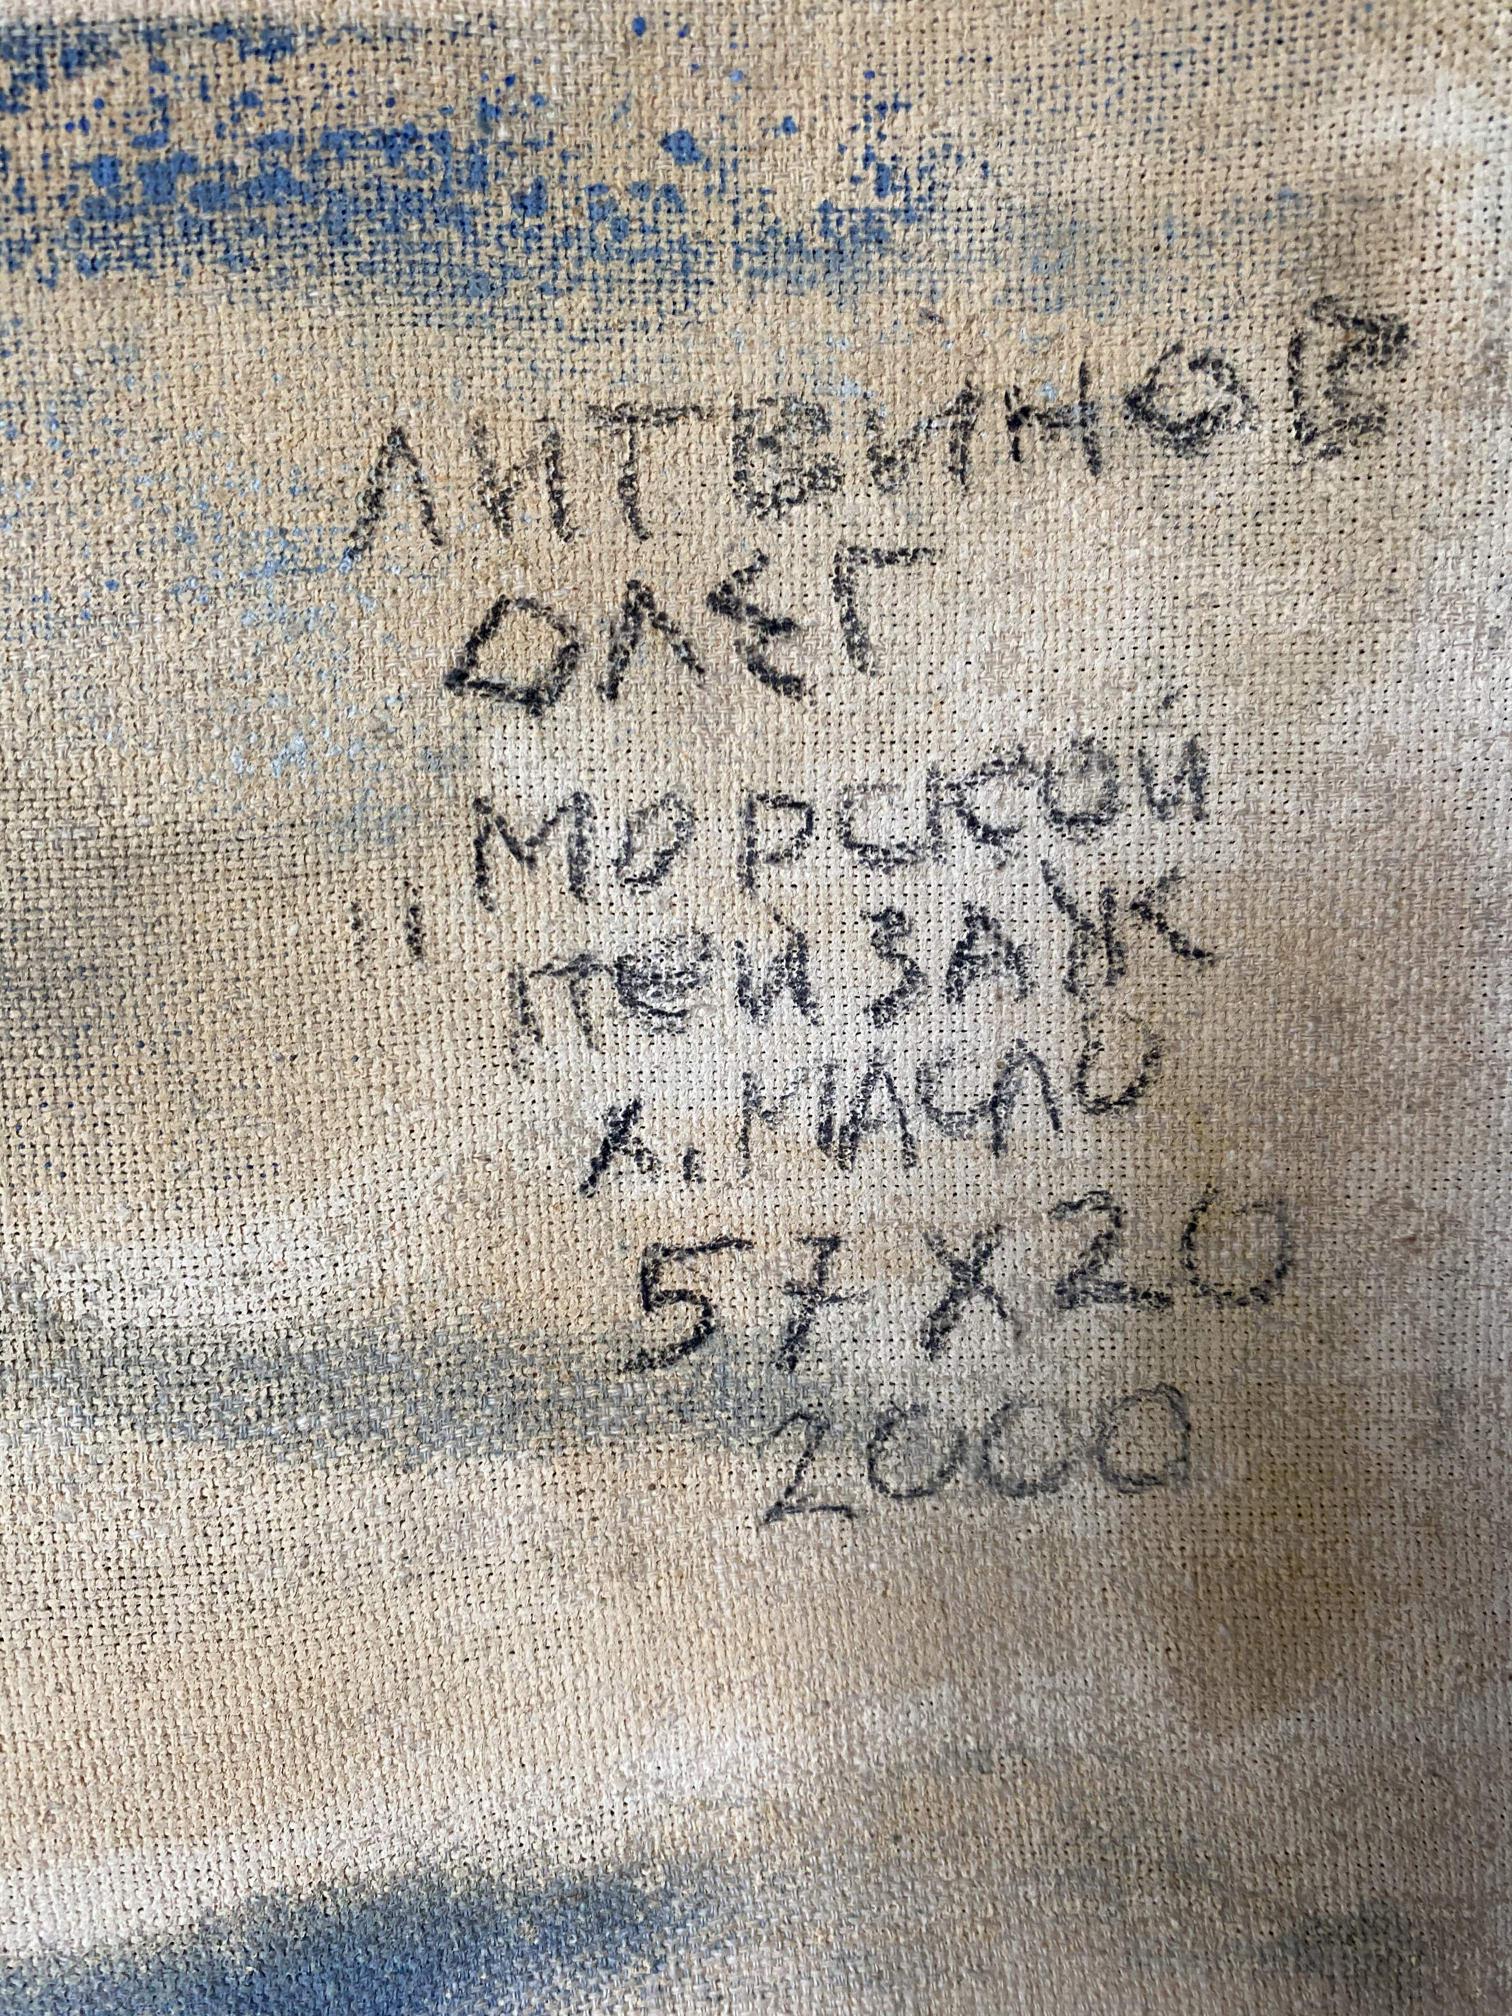 ЛИТВИНОВ
ОЛЕГ
"МОРСКОЙ
ПЕЙЗАЖ
"
х. МАСЛО
57 х 20
2000